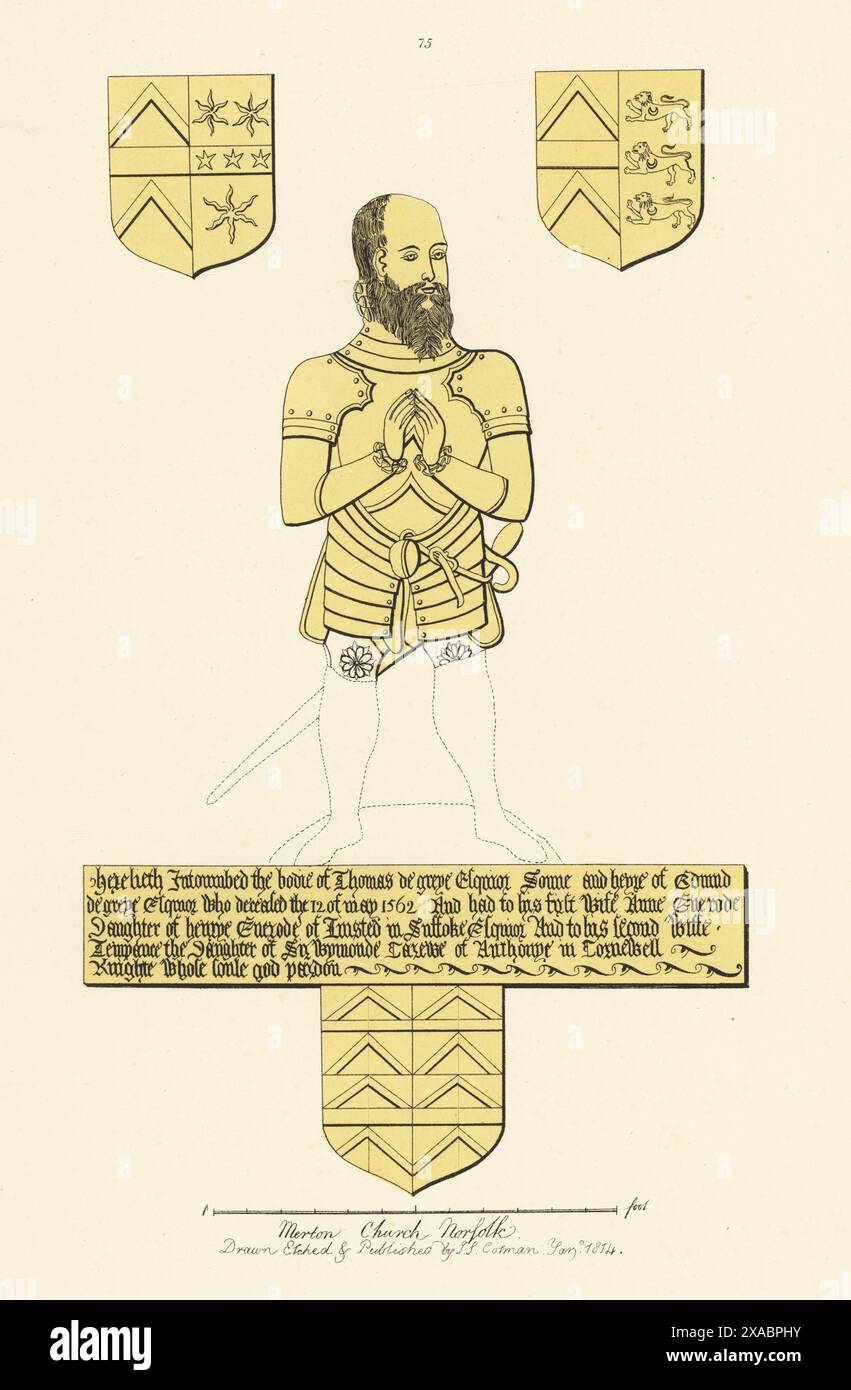 75
here lieth Intoumbed the bodie of Thomas de greye Esquior Sonne and heyre of Edmūd
de greye Esquior Who deceased the 12 of may 1562 And had to his fyrst Wife Anne Everode
Daughter of henrye Everode of in Suffoke Esquior And to his second Wife
Tempance the Daughter of Sir Wymonde Carewe of Anthonye in Cornewell
Knighte Whose soule god pardon
1 foot
Merton Church Norfolk.
Drawn Etched & Published by J.S. Cotman Jany. 1814.
alamy
Image ID: 2XABPHY
www.alamy.com